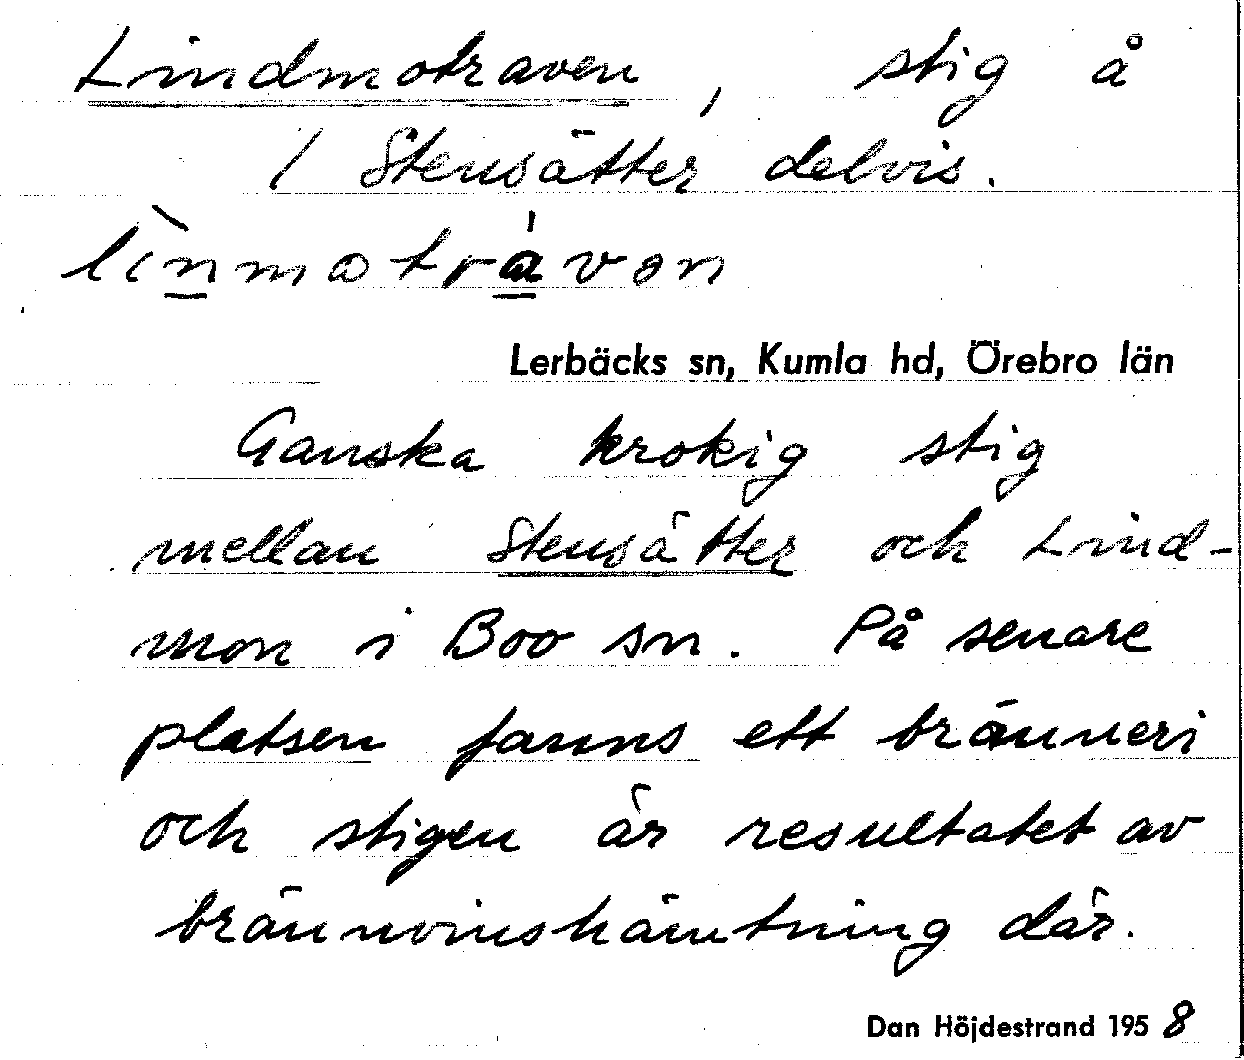 Lindmotraven, stig å
1 Stensätter delvis.
lìnmotrávan
Lerbäcks sn, Kumla hd, Örebro län
Ganska krokig stig
mellan Stensätter och Lind-
mon i Boo sn. På senare
platsen fanns ett bränneri
och stigen är resultatet av
brännvinshämtning där.
Dan Höjdestrand 1958